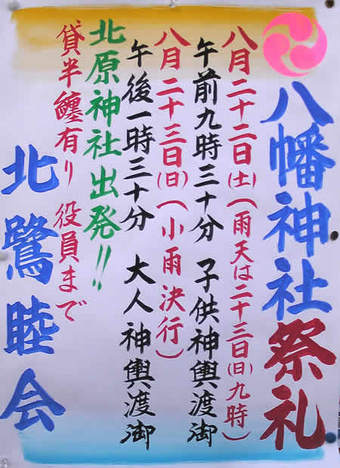 八幡神社祭礼
八月二十二日(土)(雨天は二十三日(日)九時)
午前九時三十分 子供神輿渡御
八月二十三日(日)(小雨決行)
午後一時三十分 大人神輿渡御
北原神社出発!!
貸半纏有り 役員まで
北鷺睦会